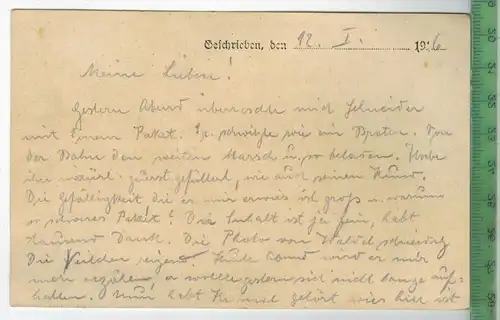 Geschrieben, den 12. I. 1916
Meine Lieben!
Gestern Abend überraschte mich Schneider
mit Eurem Paket. Er schwitzte wie ein Braten. Von
der Bahn den weiten Marsch u. so beladen. Habe
ihn zuerst gefüttert, wie auch seinen Hund.
Die Gefälligkeit die er mir erwies ist groß u. warum
so schweres Paket? Der Inhalt ist ja fein, habt
tausend Dank. Die Photo von
Die reizend. Heute Abend wird er mir
mehr erzählen, er wollte gestern sich nicht lange auf=
halten. Nun habt Ihr mal gehört wies hier ist